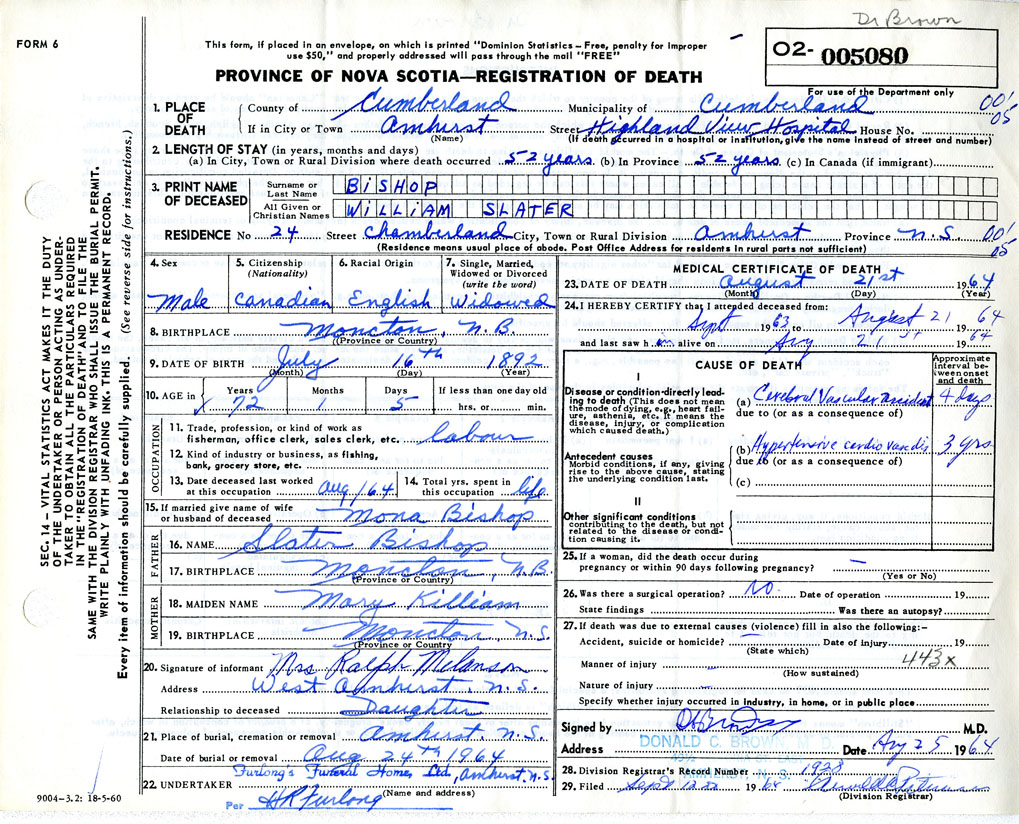 Dr Brown
FORM 6
This form, if placed in an envelope, on which is printed "Dominion Statistics – Free, penalty for improper
use $50," and properly addressed will pass through the mail "FREE"
O2- 005080
PROVINCE OF NOVA SCOTIA—REGISTRATION OF DEATH
For use of the Department only
1. PLACE OF DEATH
County of Cumberland Municipality of Cumberland 00'
05
If in City or Town Amhurst Street Highland View Hospital House No.
(Name) (If death occurred in a hospital or institution, give the name instead of street and number)
2. LENGTH OF STAY (in years, months and days)
(a) In City, Town or Rural Division where death occurred 52 years (b) In Province 52 years (c) In Canada (if immigrant)
3. PRINT NAME OF DECEASED
Surname or Last Name BISHOP
All Given or Christian Names WILLIAM SLATER
RESIDENCE No 24 Street Chamberland City, Town or Rural Division Amhurst Province N.S. 00'
05
(Residence means usual place of abode. Post Office Address for residents in rural parts not sufficient)
4. Sex Male
5. Citizenship (Nationality) Canadian
6. Racial Origin English
7. Single, Married, Widowed or Divorced (write the word) Widowed
8. BIRTHPLACE Moncton, N.B.
(Province or Country)
9. DATE OF BIRTH July 16th 1892
(Month) (Day) (Year)
10. AGE in Years 72 Months 1 Days 5 If less than one day old
hrs. or min.
OCCUPATION
11. Trade, profession, or kind of work as
fisherman, office clerk, sales clerk, etc. labour
12. Kind of industry or business, as fishing,
bank, grocery store, etc.
13. Date deceased last worked
at this occupation Aug/64
14. Total yrs. spent in
this occupation life
15. If married give name of wife
or husband of deceased Mona Bishop
FATHER
16. NAME Slater Bishop
17. BIRTHPLACE Moncton, N.B.
(Province or Country)
MOTHER
18. MAIDEN NAME Mary Killiam
19. BIRTHPLACE Moncton, N.S.
(Province or Country)
20. Signature of informant Mrs Ralph Melanson
Address West Amhurst, N.S.
Relationship to deceased Daughter
21. Place of burial, cremation or removal Amhurst, N.S.
Date of burial or removal Aug 24th 1964
22. UNDERTAKER Furlong's Funeral Homes Ltd, Amhurst, N.S.
(Name and address)
Per HR Furlong
9004-3.2: 18-5-60
MEDICAL CERTIFICATE OF DEATH
23. DATE OF DEATH August 21st 1964
(Month) (Day) (Year)
24. I HEREBY CERTIFY that I attended deceased from:
Sept 1963 to August 21 64
and last saw him alive on Aug 21st 1964
CAUSE OF DEATH
Approximate interval between onset and death
I
Disease or condition directly leading to death (This does not mean the mode of dying, e.g., heart failure, asthenia, etc. It means the disease, injury, or complication which caused death.)
(a) Cerebral Vascular accident 4 days
due to (or as a consequence of)
Antecedent causes
Morbid conditions, if any, giving rise to the above cause, stating the underlying condition last.
(b) Hypertensive cardio vascdis 3 yrs
due to (or as a consequence of)
(c)
II
Other significant conditions
contributing to the death, but not related to the disease or condition causing it.
25. If a woman, did the death occur during
pregnancy or within 90 days following pregnancy? —
(Yes or No)
26. Was there a surgical operation? No. Date of operation 19
State findings Was there an autopsy?
27. If death was due to external causes (violence) fill in also the following:–
Accident, suicide or homicide? — Date of injury 19
(State which)
Manner of injury 443x
(How sustained)
Nature of injury —
Specify whether injury occurred in industry, in home, or in public place
Signed by DC Brown M.D.
Address DONALD C. BROWN, M.D. Date Aug 25 1964
AMHERST, N. S.
28. Division Registrar's Record Number 1938
29. Filed Sept 1964
(Division Registrar)
SEC. 14 – VITAL STATISTICS ACT MAKES IT THE DUTY
OF THE UNDERTAKER OR PERSON ACTING AS UNDER-
TAKER TO OBTAIN ALL THE PARTICULARS REQUIRED
IN THE "REGISTRATION OF DEATH" AND TO FILE THE
SAME WITH THE DIVISION REGISTRAR WHO SHALL ISSUE THE BURIAL PERMIT.
WRITE PLAINLY WITH UNFADING INK. THIS IS A PERMANENT RECORD.
Every item of information should be carefully supplied. (See reverse side for instructions.)